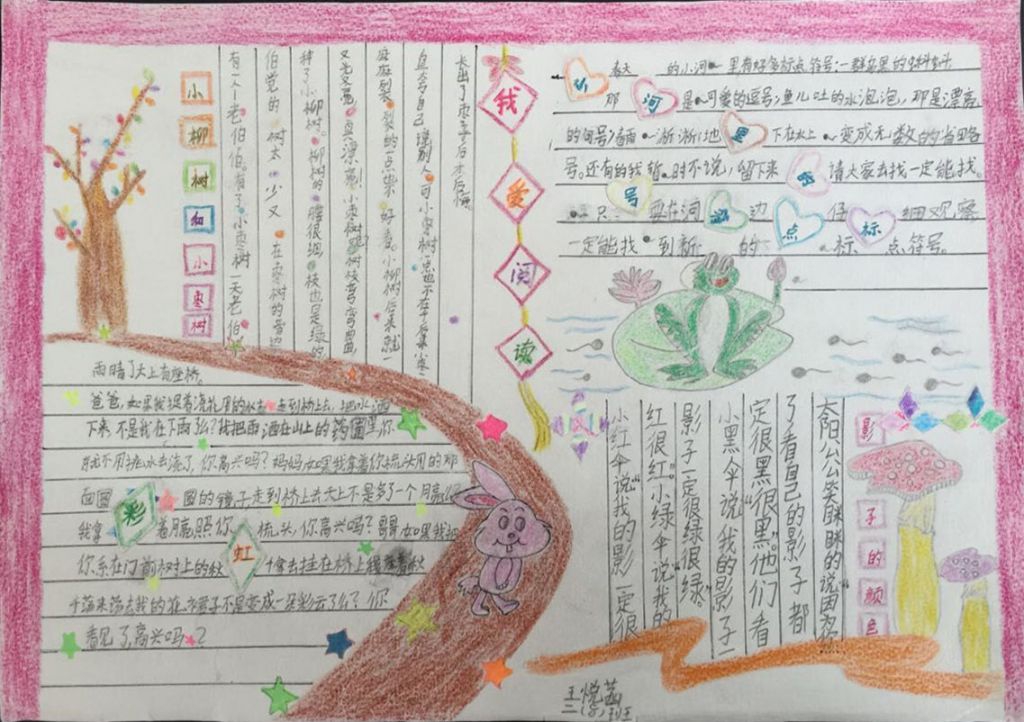 小柳树和小枣树
有一个老伯伯,有了小枣树一天老伯
伯觉的树太少又在枣树的旁边
种了小柳树。柳树的腰很细,枝也是绿的
又光又亮,真漂亮!小枣树呢?树枝弯弯曲曲,
的一点 好看。小柳树后来就一
直夸自己 别人可小枣树一点也不在乎后来小枣
长出了枣子 后才后悔。
我爱阅读
春天的小河里有好多标点符号:一群如果的
那是可爱的逗号;鱼儿吐的水泡泡,那是漂亮
的句号;春雨渐渐地下在水上变成无数的省略
号。还有的我暂时不说,留下来请大家去找一定能找。
要在河边仔细观察
一定能找到新的标点符号。
小河里的号点标
彩虹
雨晴了天上有座桥。
爸爸,如果我提着浇花用的水壶走到桥上去,把水洒
下来不是我在下雨么?我把雨洒在山上的 里你
就不用挑水去浇了,你高兴吗?妈妈如果我拿着你梳头用的那
面圆圆的镜子走到桥上去天上不是多了一个月亮
我拿着月亮,照你梳头,你高兴吗?哥哥如果我把
你系在门前树上的秋千拿去挂在桥上 着秋
千荡来荡去我的花 不是变成一朵彩云了么?你
看见了,高兴吗?
影子的颜色
太阳公公笑眯眯的说:“因为你
了看自己的影子都
定很黑”很黑”。他们看
小黑伞说“我的影子一
影子一定很绿很绿。”
红很红”。小绿伞说“我的
小红伞说“我的影一定很
王悦茜
二(8)班